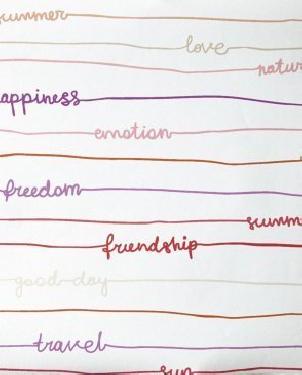 summer
love
natur
appiness
emotion
freedom
summ
friendship
good day
travel
sun